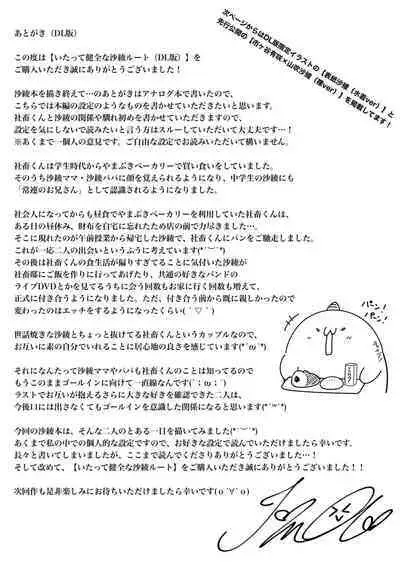 次ページからはDL版限定イラストの【表紙沙綾(水着ver)】と
先行公開の【市ヶ谷有咲×山吹沙綾(裸ver)】を掲載してます!
あとがき(DL版)
この度は【いたって健全な沙綾ルート(DL版)】を
ご購入いただき誠にありがとうございます!
沙綾本を描き終えて…のあとがきはアナログ本で書いたので、
こちらでは本編の設定のようなものを書かせていただきたいと思います。
社畜くんと沙綾の関係や馴れ初めを書かせていただきますので、
設定を気にしないで読みたいと言う方はスルーしていただいて大丈夫です…!
※あくまで一個人の意見です。ご自由な設定でお読みいただいて構いません。
社畜くんは学生時代からやまぶきベーカリーで買い食いをしていました。
そのうち沙綾ママ・沙綾パパに顔を覚えられるようになり、中学生の沙綾にも
「常連のお兄さん」として認識されるようになりました。
社会人になってからも昼食でやまぶきベーカリーを利用していた社畜くんは、
ある日の昼休み、財布を自宅に忘れたため店の前で力尽きました…。
そこに現れたのが午前授業から帰宅した沙綾で、社畜くんにパンをご馳走しました。
これが一応二人の出会いというふうに考えています(*´︶`*)
その後は社畜くんの食生活が偏りすぎてることに気付いた沙綾が
社畜邸にご飯を作りに行ってあげたり、共通の好きなバンドの
ライブDVDとかを見てるうちに会う回数もお家に行く回数も増えて、
正式に付き合うようになりました。ただ、付き合う前から既に親しかったので
変わったのはエッチをするようになったくらい(´▽`)
世話焼きな沙綾とちょっと抜けてる社畜くんというカップルなので、
お互いに素の自分でいれることに居心地の良さを感じています(*´ω`*)
それになんたって沙綾ママやパパも社畜くんのことは知ってるので
もうこのままゴールインに向けて一直線なんです(`;ω;´)
ラストでお互いが抱えるさらに大きな好きを確認できた二人は、
今後口には出さなくてもゴールインを意識した関係になると思います(*´︶`*)
今回の沙綾本は、そんな二人のとある一日を描いてみました(*´︶`*)
あくまで私の中での個人的な設定ですので、お好きな設定で読んでいただけましたら幸いです。
長々と書いてしまいましたが、ここまで読んでくださりありがとうございました…!
そして改めて、【いたって健全な沙綾ルート】をご購入いただき誠にありがとうございます!!
次回作も是非楽しみにお待ちいただけましたら幸いです(о´∀`о)
パン!
パン!